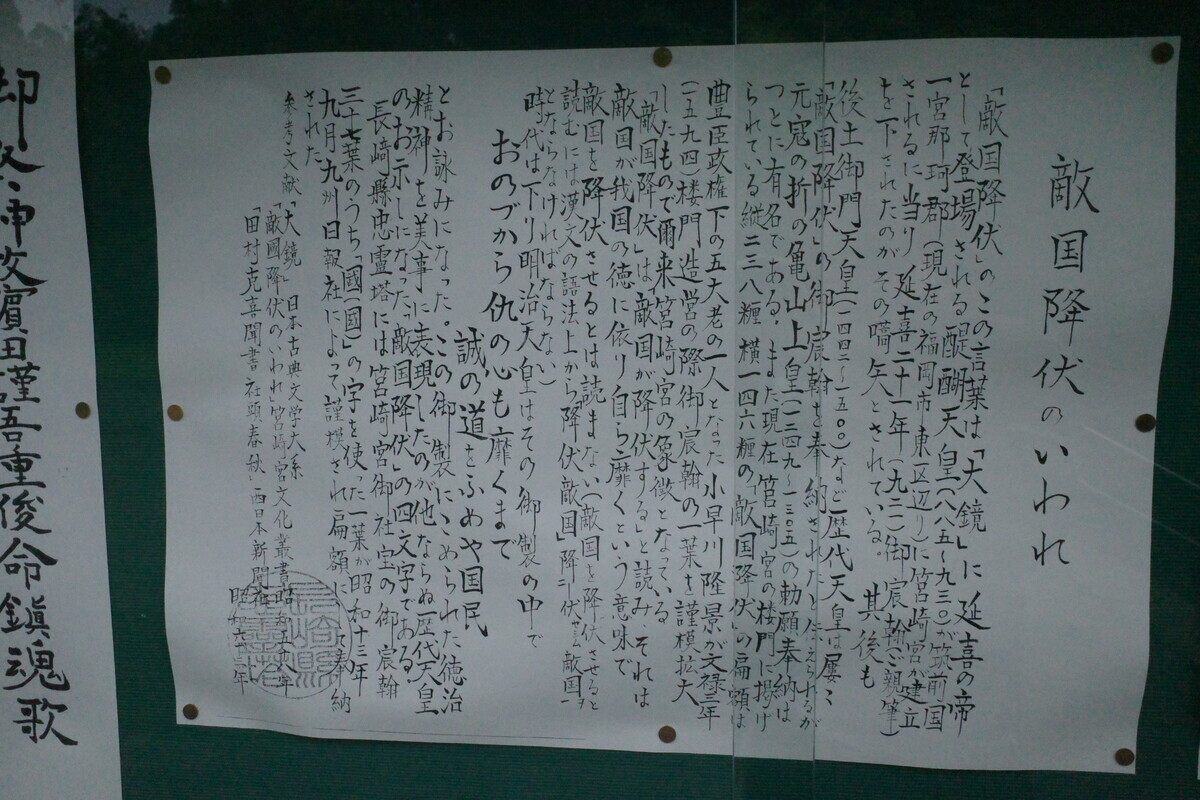 敵国降伏のいわれ
「敵国降伏」のこの言葉は「大鏡」に延喜の帝
として登場される醍醐天皇(八八五〜九三〇)が筑前国
一宮那珂郡(現在の福岡市東区辺り)に筥崎宮が建立
されるに当り延喜二十一年(九二一)御宸翰(ご親筆)
を下されたのがその嚆矢とされている。其後も
後土御門天皇(一四四二〜一五〇〇)など歴代天皇は屡々
「敵国降伏」の御宸翰を奉納されたと伝えられるが
元寇の折の亀山上皇(一二四九〜一三〇五)の勅願奉納は
つとに有名である。また現在筥崎宮の楼門に掲げ
られている縦二三八糎横一四六糎の「敵国降伏」の扁額は
豊臣政権下の五大老の一人となった小早川隆景が文禄三年
(一五九四)楼門造営の際御宸翰の一葉を謹模拡大
したもので爾来筥崎宮の象徴となっている
「敵国降伏」は敵国が降伏すると読みそれは
敵国が我国の徳に依り自ら靡くという意味で
敵国を降伏させるとは読まない(敵国を降伏させると
読むには漢文の語法上から降伏敵国
とならなければならない)
時代は下り明治天皇はその御製の中で
おのづから仇の心も靡くまで
誠の道をふめや国民
とお詠みになった。この御製にこめられた徳治
精神を美事に表現したのが他ならぬ歴代天皇
のお示しになった「敵国降伏」の四文字である
長崎縣忠霊塔には筥崎宮御社宝の御宸翰
三十七葉のうち「國(国)」の字を使った一葉が昭和十三年
九月九州日報社によって謹模され扁額に奉納
された
参考文献「大鏡」日本古典文学大系
「敵國降伏のいわれ」筥崎宮文化叢書
「田村克喜聞書社頭春秋」西日本新聞
昭和六十三年
神改濵田謹吾重俊命鎮魂歌